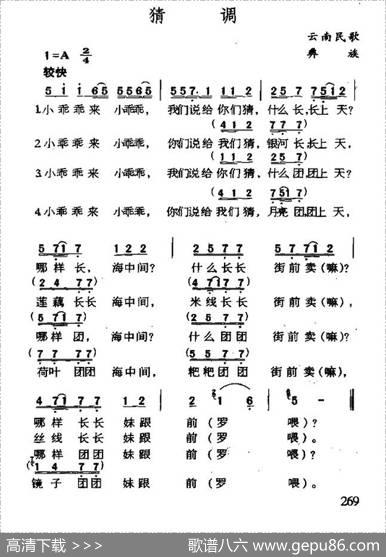 猜 调
云南民歌
彝 族
1=A 2/4
较快
5 i i 6 5 5 5 6 5 | 5 5 7· 1 1 1 2 | 2 5 7 7 5 1 2 |
1.小乖乖来 小乖乖, 我们说给你们猜, 什么长长上天?
(4 1 2 7 7 7)
2.小乖乖来 小乖乖, 你们说给我们猜, 银河长长上天,
(1 1 2 2 5 7)
3.小乖乖来 小乖乖, 我们说给你们猜, 什么团团上天?
(4 1 2 7 5 1 7)
4.小乖乖来 小乖乖, 你们说给我们猜, 月亮团团上天,
5 7 1 7 1 2 2 | 2 5 7 7 5 7 7 1 2 |
哪样长, 海中间? 什么长长 街前卖(嘛)?
(2 4 7 7) (4 7 1 7 7)
莲藕长长 海中间, 米线长长 街前卖(嘛),
(5 7 1 7) (2 5 7 7)
哪样团, 海中间? 什么团团 街前卖(嘛)?
(7 7 7 7) (2 2 7 7)
荷叶团团 海中间, 粑粑团团 街前卖(嘛),
4 7 1 7 7 1 2 | 2 1 6 | 5 -
哪样长长 妹跟 前(罗 喂)?
丝线长长 妹跟 前(罗 喂)。
哪样团团 妹跟 前(罗 喂)?
(1 4 7 7)
镜子团团 妹跟 前(罗 喂)。
269
高清下载 >>> 歌谱八六 www.gepu86.com